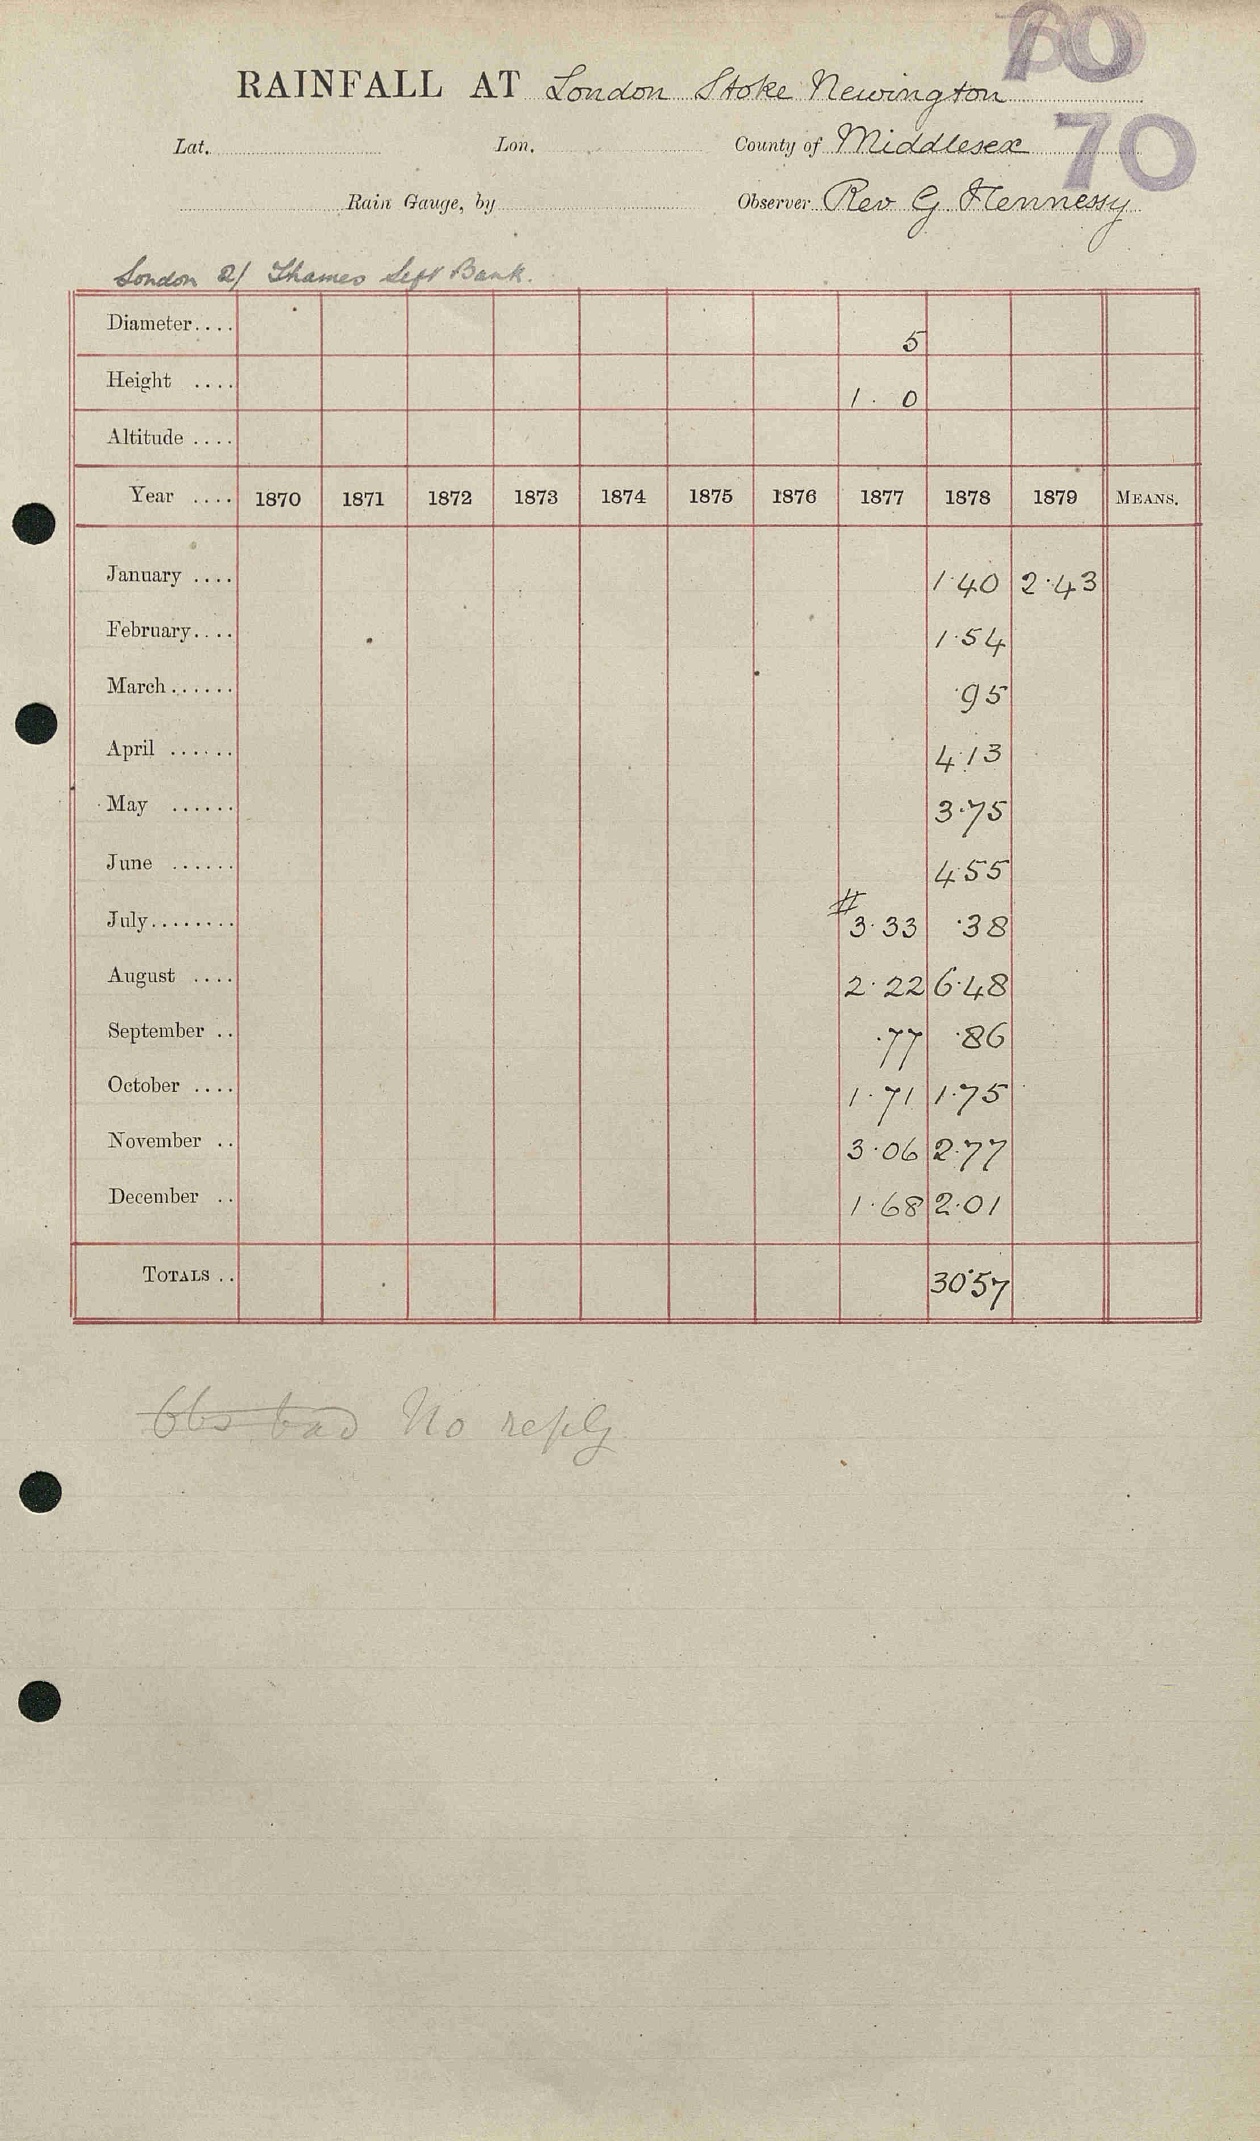 60
RAINFALL AT London Stoke Newington
70
Lat. Lon. County of Middlesex
Rain Gauge, by Observer Rev G. Hennessy
London 2/ Thames Left Bank.
Diameter.... 5
Height .... 1. 0
Altitude ....
Year .... 1870 1871 1872 1873 1874 1875 1876 1877 1878 1879 MEANS.
January .... 1.40 2.43
February.... 1.54
March...... .95
April ...... 4.13
May ...... 3.75
June ...... 4.55
July........ # 3.33 .38
August .... 2.22 6.48
September .. .77 .86
October .... 1.71 1.75
November .. 3.06 2.77
December .. 1.68 2.01
TOTALS .. 30.57
Obs bad No reply